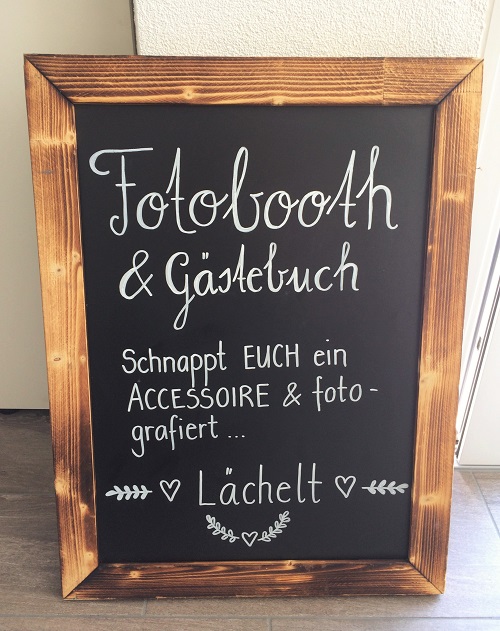 Fotobooth
& Gästebuch
Schnappt EUCH ein
ACCESSOIRE & foto-
grafiert...
Lächelt